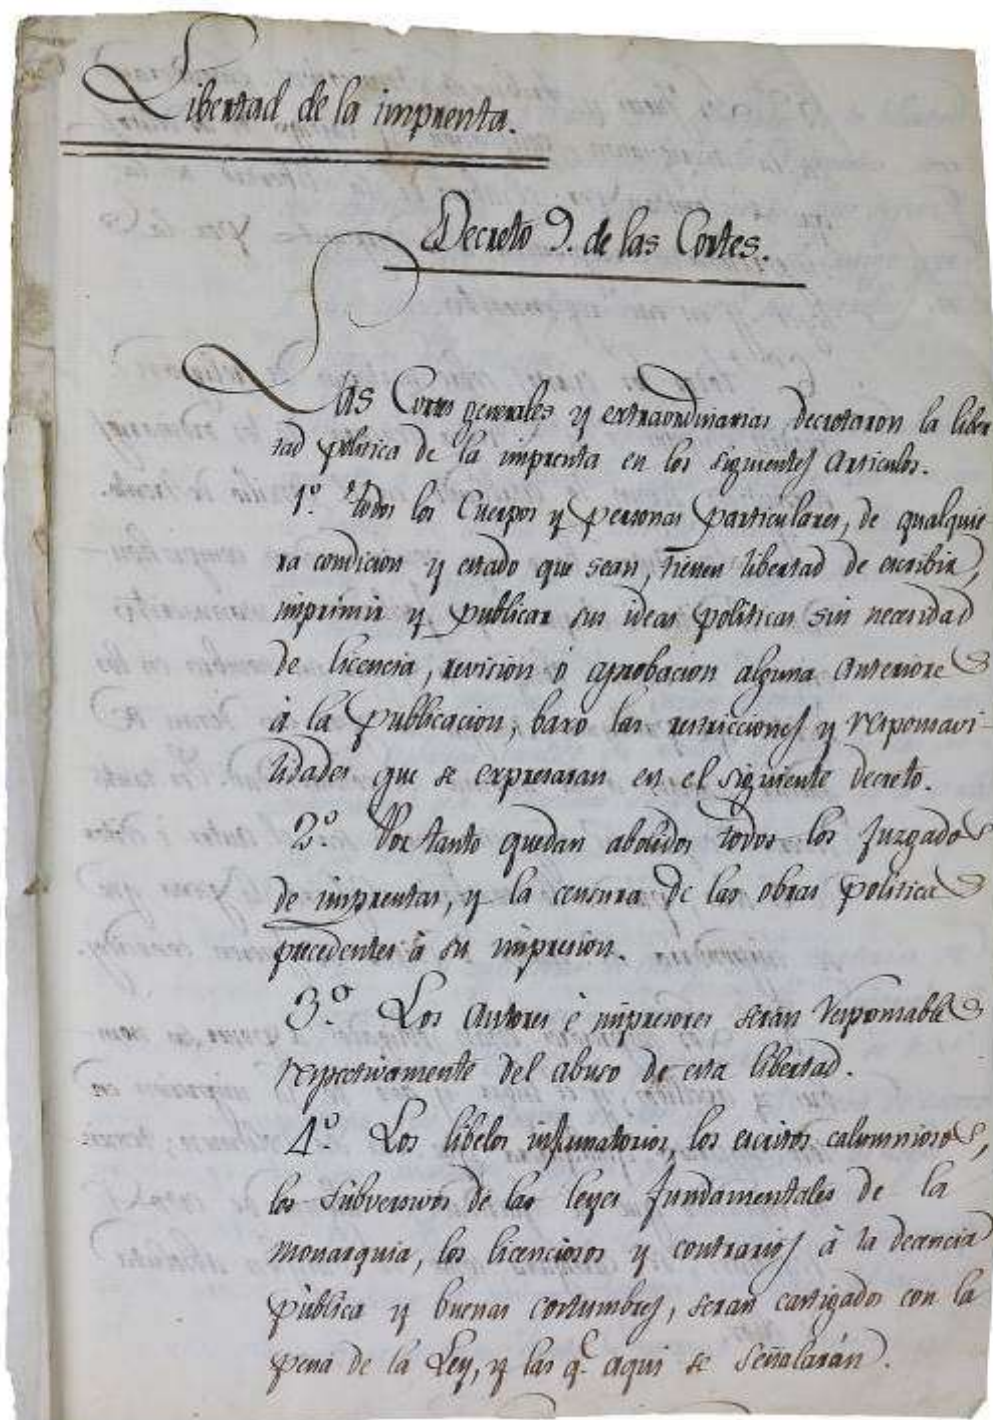 Libertad de la imprenta.
Decreto 9. de las Cortes.
Las Cortes generales y extraordinarias decretaron la liber
tad política de la imprenta en los siguientes Articulos.
1º. todos los Cuerpos y personas particulares, de qualquie
ra condicion y estado que sean, tienen libertad de escribir,
imprimir y publicar sus ideas políticas sin necesidad
de licencia, revision ó aprobacion alguna anteriores
á la publicacion, baxo las restricciones y responsavi-
lidades que se expresaran en el siguiente decreto.
2º. Por tanto quedan abolidos todos los juzgados
de imprentas, y la censura de las obras políticas
precedentes á su impresion.
3º. Los Autores é impresores serán responsables
respectivamente del abuso de esta libertad.
4º. Los libelos infamatorios, los escritos calumniosos,
los subversivos de las leyes fundamentales de la
monarquia, los licenciosos y contrarios á la decencia
pública y buenas costumbres, seran castigados con la
pena de la Ley, y las q.e aqui se señalarán.